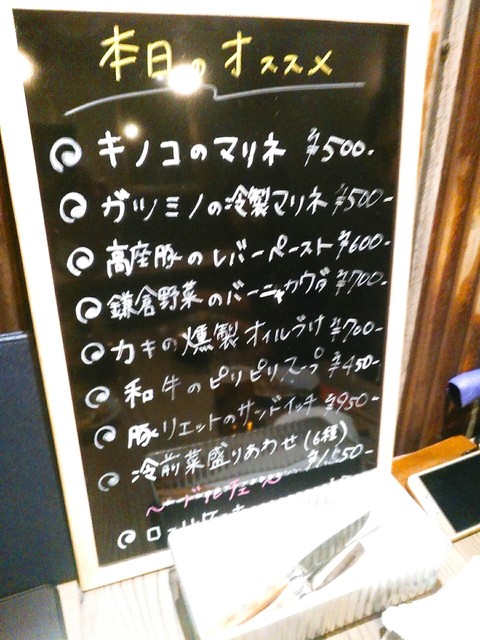 本日のオススメ
キノコのマリネ ¥500-
ガツミノの冷製マリネ ¥500-
高座豚のレバーペースト ¥600-
鎌倉野菜のバーニャカウダ ¥700-
カキの燻製オイルづけ ¥700-
和牛のピリピリスープ ¥450-
豚リエットのサンドイッチ ¥950-
冷前菜盛りあわせ(6種)
〜ドルチェ〜